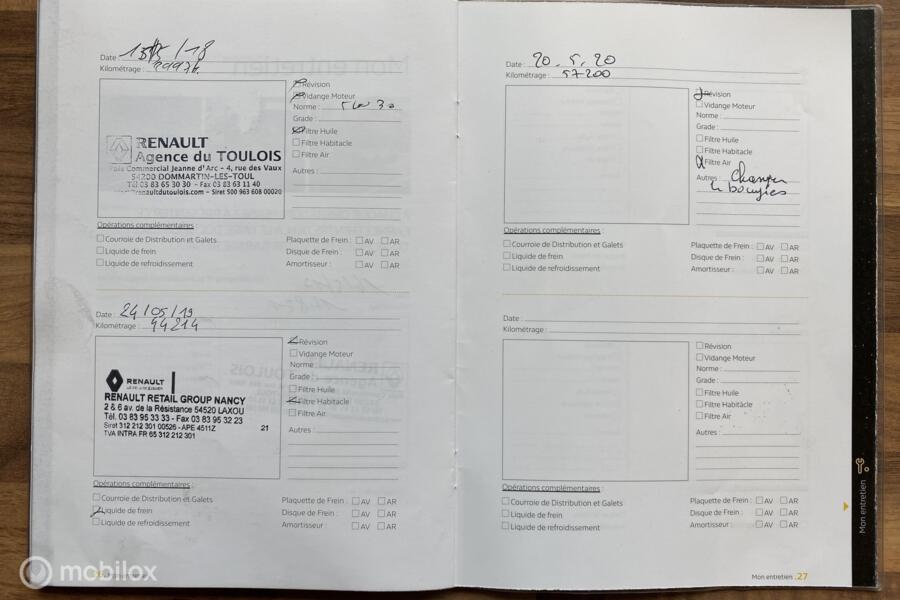 Date : 15/5/18
Kilométrage : 29976
RENAULT
Agence du TOULOIS
Pole Commercial Jeanne d'Arc - 4, rue des Vaux
54200 DOMMARTIN-LES-TOUL
Tél 03 83 65 30 30 - Fax 03 83 63 11 40
renaultdutoulois.com - Siret 500 963 608 00020
Révision
Vidange Moteur
Norme : 5w30
Grade :
Filtre Huile
Filtre Habitacle
Filtre Air
Autres :
Opérations complémentaires :
Courroie de Distribution et Galets
Liquide de frein
Liquide de refroidissement
Plaquette de Frein : AV AR
Disque de Frein : AV AR
Amortisseur : AV AR
Date : 24/05/19
Kilométrage : 44214
RENAULT
RENAULT RETAIL GROUP NANCY
2 & 6 av. de la Résistance 54520 LAXOU
Tél. 03 83 95 33 33 - Fax 03 83 95 32 23
Siret 312 212 301 00526 - APE 4511Z 21
TVA INTRA FR 65 312 212 301
Révision
Vidange Moteur
Norme :
Grade :
Filtre Huile
Filtre Habitacle
Filtre Air
Autres :
Opérations complémentaires :
Courroie de Distribution et Galets
Liquide de frein
Liquide de refroidissement
Plaquette de Frein : AV AR
Disque de Frein : AV AR
Amortisseur : AV AR
Date : 20.5.20
Kilométrage : 57200
Révision
Vidange Moteur
Norme :
Grade :
Filtre Huile
Filtre Habitacle
Filtre Air
Autres : Changer
bougies
Opérations complémentaires :
Courroie de Distribution et Galets
Liquide de frein
Liquide de refroidissement
Plaquette de Frein : AV AR
Disque de Frein : AV AR
Amortisseur : AV AR
Date :
Kilométrage :
Révision
Vidange Moteur
Norme :
Grade :
Filtre Huile
Filtre Habitacle
Filtre Air
Autres :
Opérations complémentaires :
Courroie de Distribution et Galets
Liquide de frein
Liquide de refroidissement
Plaquette de Frein : AV AR
Disque de Frein : AV AR
Amortisseur : AV AR
Mon entretien
Mon entretien . 27
mobilox